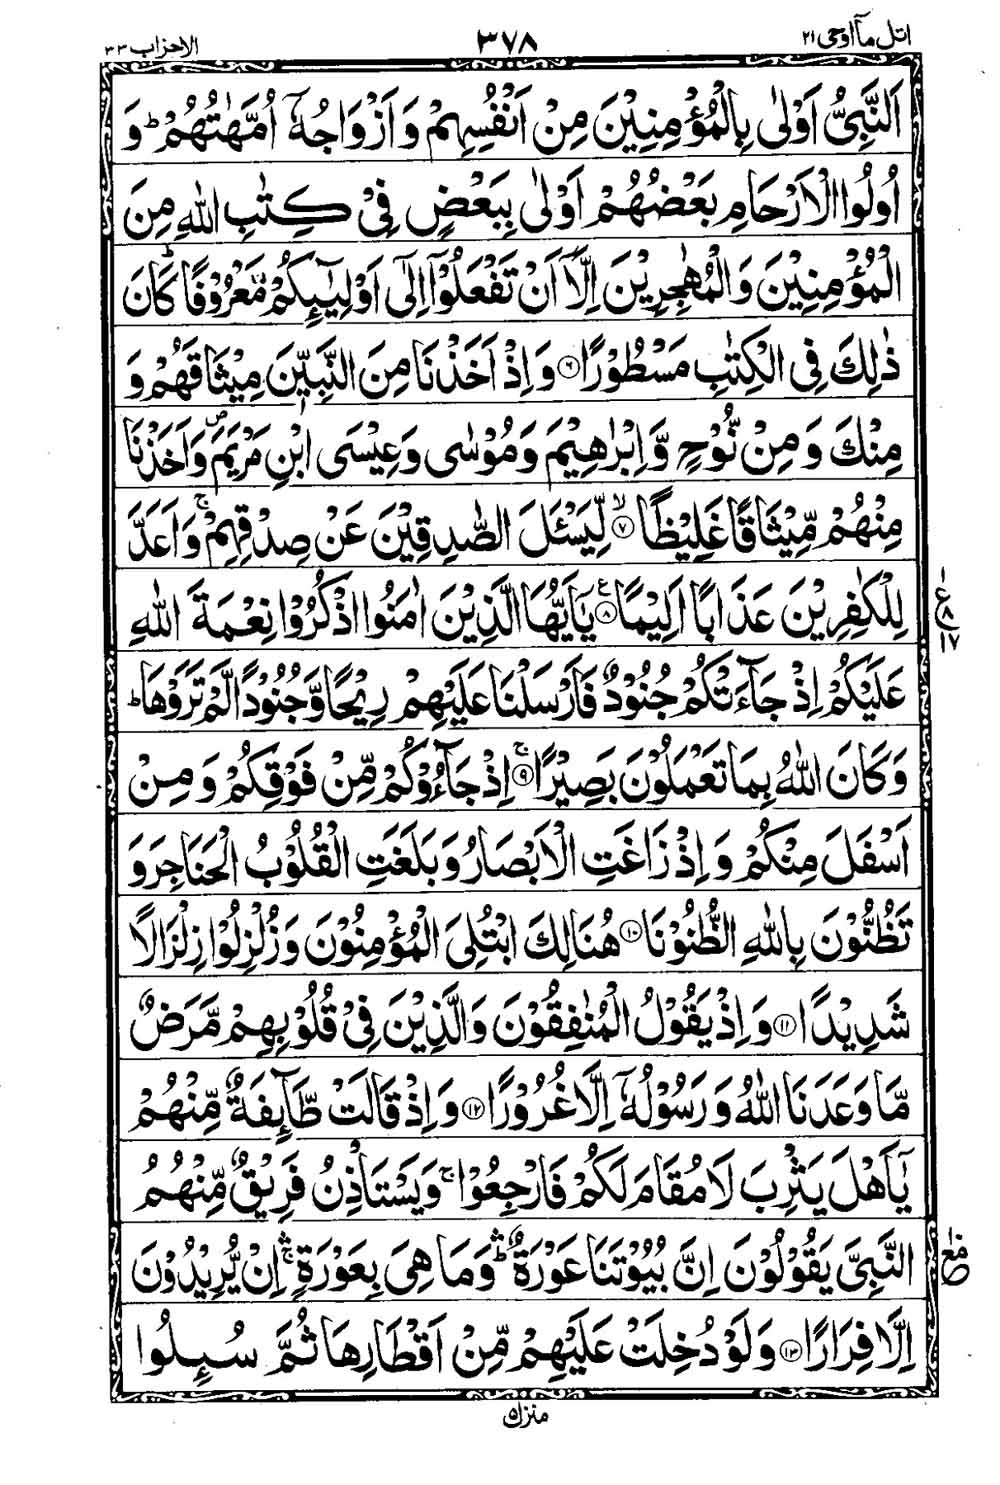 اتل مآ اوحی ٢١
٣٧٨
الاحزاب ٣٣
اَلنَّبِىُّ اَوْلٰى بِالْمُؤْمِنِيْنَ مِنْ اَنْفُسِهِمْ وَ اَزْوَاجُهٗۤ اُمَّهٰتُهُمْ ؕ وَ
اُولُوا الْاَرْحَامِ بَعْضُهُمْ اَوْلٰى بِبَعْضٍ فِىْ كِتٰبِ اللّٰهِ مِنَ
الْمُؤْمِنِيْنَ وَ الْمُهٰجِرِيْنَ اِلَّاۤ اَنْ تَفْعَلُوْۤا اِلٰۤى اَوْلِيٰٓئِكُمْ مَّعْرُوْفًا ؕ كَانَ
ذٰلِكَ فِى الْكِتٰبِ مَسْطُوْرًا ۶ وَ اِذْ اَخَذْنَا مِنَ النَّبِيّٖنَ مِيْثَاقَهُمْ وَ
مِنْكَ وَ مِنْ نُّوْحٍ وَّ اِبْرٰهِيْمَ وَ مُوْسٰى وَ عِيْسَى ابْنِ مَرْيَمَ ۪ وَ اَخَذْنَا
مِنْهُمْ مِّيْثَاقًا غَلِيْظًا ۙ ۷ لِّيَسْـَٔلَ الصّٰدِقِيْنَ عَنْ صِدْقِهِمْ ۚ وَ اَعَدَّ
لِلْكٰفِرِيْنَ عَذَابًا اَلِيْمًا ۸ ع يٰۤاَيُّهَا الَّذِيْنَ اٰمَنُوا اذْكُرُوْا نِعْمَةَ اللّٰهِ
عَلَيْكُمْ اِذْ جَآءَتْكُمْ جُنُوْدٌ فَاَرْسَلْنَا عَلَيْهِمْ رِيْحًا وَّ جُنُوْدًا لَّمْ تَرَوْهَا ؕ
وَ كَانَ اللّٰهُ بِمَا تَعْمَلُوْنَ بَصِيْرًا ۚ ۹ اِذْ جَآءُوْكُمْ مِّنْ فَوْقِكُمْ وَ مِنْ
اَسْفَلَ مِنْكُمْ وَ اِذْ زَاغَتِ الْاَبْصَارُ وَ بَلَغَتِ الْقُلُوْبُ الْحَنَاجِرَ وَ
تَظُنُّوْنَ بِاللّٰهِ الظُّنُوْنَا ۱۰ هُنَالِكَ ابْتُلِىَ الْمُؤْمِنُوْنَ وَ زُلْزِلُوْا زِلْزَالًا
شَدِيْدًا ۱۱ وَ اِذْ يَقُوْلُ الْمُنٰفِقُوْنَ وَ الَّذِيْنَ فِىْ قُلُوْبِهِمْ مَّرَضٌ
مَّا وَعَدَنَا اللّٰهُ وَ رَسُوْلُهٗۤ اِلَّا غُرُوْرًا ۱۲ وَ اِذْ قَالَتْ طَّآئِفَةٌ مِّنْهُمْ
يٰۤاَهْلَ يَثْرِبَ لَا مُقَامَ لَكُمْ فَارْجِعُوْا ۚ وَ يَسْتَاْذِنُ فَرِيْقٌ مِّنْهُمُ
النَّبِىَّ يَقُوْلُوْنَ اِنَّ بُيُوْتَنَا عَوْرَةٌ ۛؕ وَ مَا هِىَ بِعَوْرَةٍ ۛۚ اِنْ يُّرِيْدُوْنَ
اِلَّا فِرَارًا ۱۳ وَ لَوْ دُخِلَتْ عَلَيْهِمْ مِّنْ اَقْطَارِهَا ثُمَّ سُئِلُوا
منزل ۵